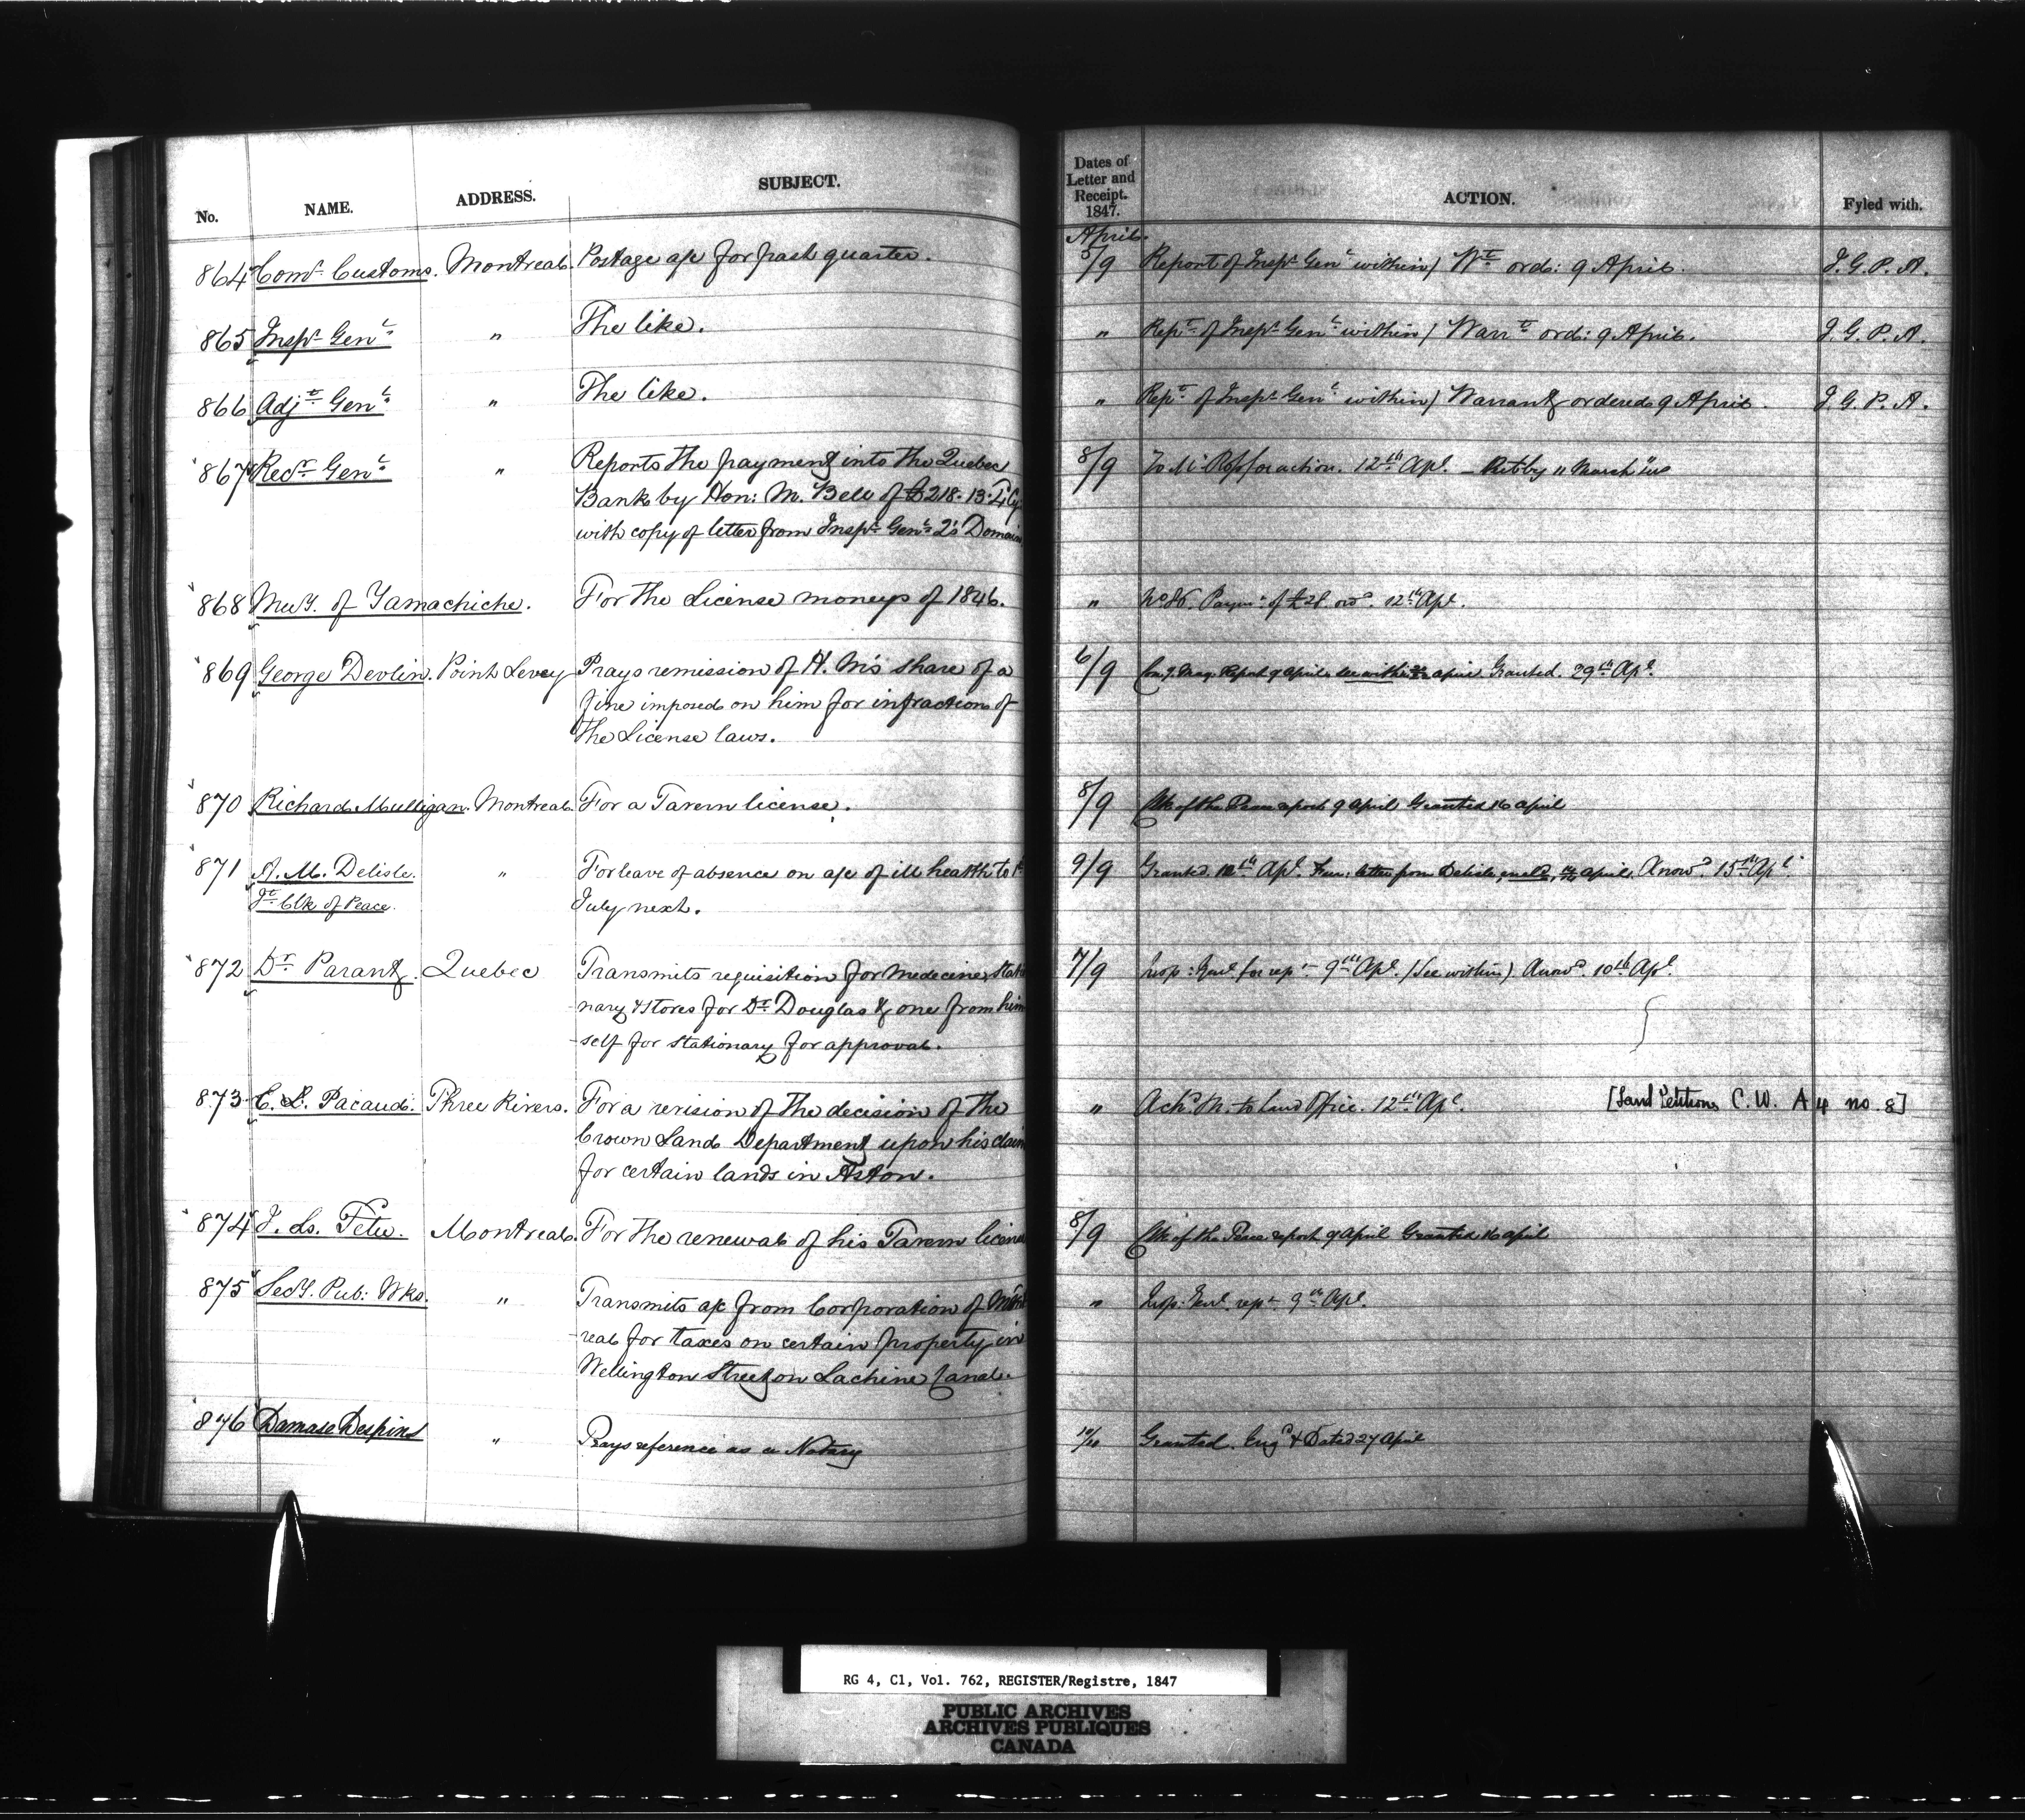 No. NAME. ADDRESS. SUBJECT. Dates of Letter and Receipt. 1847. ACTION. Fyled with.
April
864 Comr Customs. Montreal. Postage a/c for past quarter. 5/9 Report of Inspr Genl within / Wt ord: 9 April. I. G. P. A.
865 Inspr Genl " The like. " Rept of Inspr Genl within / Warrt ord: 9 April. I. G. P. A.
866 Adjt Genl " The like. " Rept of Inspr Genl within / Warrant ordered 9 April. I. G. P. A.
867 Recr Genl " Reports the payment into the Quebec 8/9 To Mr Ross for action. 12th Apl. – Put by 11 March
Bank by Hon: M. Bell of £218. 13.
with copy of letter from Inspr Genl Q's Domain
868 Muy. of Yamachiche. For the License moneys of 1846. " Paymt of £28 ord. 12th Apl.
869 George Devlin. Point Levey Prays remission of H. M's share of a 6/9 Report 9 April. Granted. 29th Apl.
fine imposed on him for infraction of
the License laws.
870 Richard Mulligan. Montreal. For a Tavern license. 8/9 Clk of the Peace report 9 April Granted 16 April
871 A. M. Delisle. " For leave of absence on a/c of ill health to 1st 9/9 Granted 12th Apl. letter from Delisle, April. Answd 15th Apl.
Jt Clk of Peace. July next.
872 Dr Parant. Quebec Transmits requisition for medecine, statio 7/9 Insp: Genl for rept 9th Apl. (See within) Answd. 10th Apl.
nary & stores for Dr Douglas & one from him
-self for stationary for approval.
873 C. L. Pacaud. Three Rivers. For a revision of the decision of the " Ackd. to Land Office. 12th Apl. [Land Petitions C. W. A 4 no 8]
Crown Land Department upon his claim
for certain lands in Aston.
874 J. Ls. Fetu. Montreal. For the renewal of his Tavern license 8/9 Clk of the Peace report 9 April Granted 16 April
875 Secy. Pub: Wks. " Transmits a/c from Corporation of Mont " Insp: Genl. rept 9th Apl.
-real for taxes on certain property in
Wellington Street on Lachine Canal.
876 Damase Despins " Prays reference as a Notary 10/10 Granted. Engd & Dated 27 April
RG 4, C1, Vol. 762, REGISTER/Registre, 1847
PUBLIC ARCHIVES
ARCHIVES PUBLIQUES
CANADA